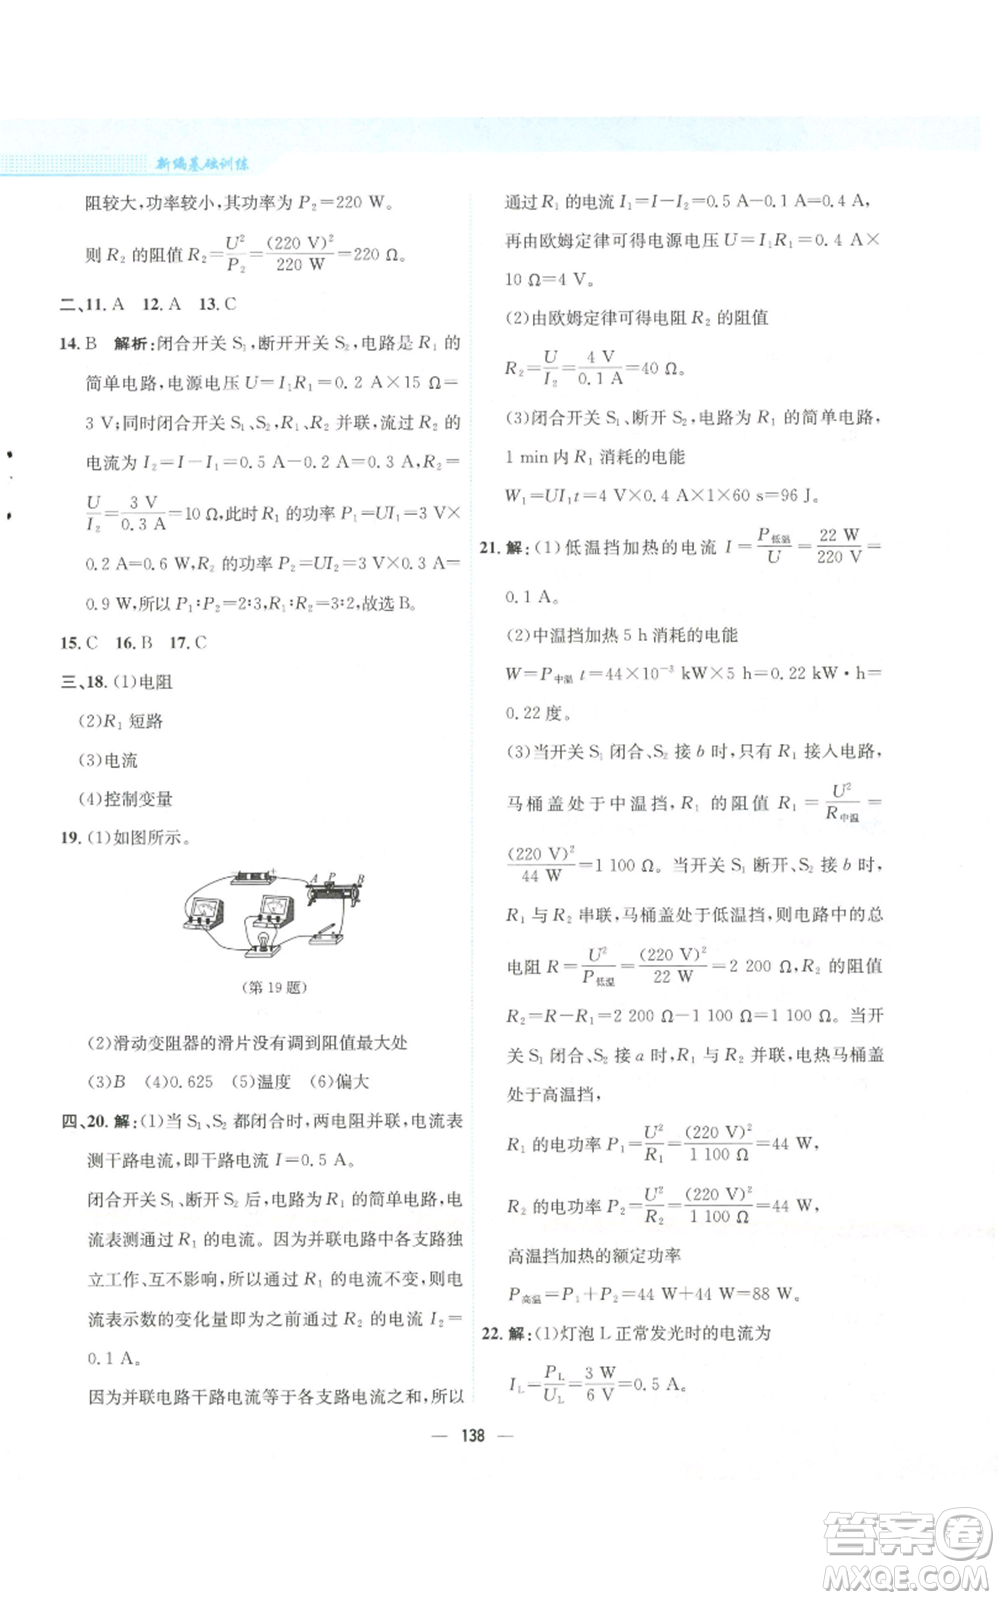 新编基础训练
阻较大,功率较小,其功率为 P₂=220 W。
则 R₂ 的阻值 R₂=U²/P₂=(220 V)²/220 W=220 Ω。
二、11. A 12. A 13. C
14. B 解析:闭合开关 S₁,断开开关 S₂,电路是 R₁ 的
简单电路,电源电压 U=I₁R₁=0.2 A×15 Ω=
3 V;同时闭合开关 S₁、S₂,R₁、R₂ 并联,流过 R₂ 的
电流为 I₂=I-I₁=0.5 A-0.2 A=0.3 A,R₂=
U/I₂=3 V/0.3 A=10 Ω,此时 R₁ 的功率 P₁=UI₁=3 V×
0.2 A=0.6 W,R₂ 的功率 P₂=UI₂=3 V×0.3 A=
0.9 W,所以 P₁∶P₂=2∶3,R₁∶R₂=3∶2,故选 B。
15. C 16. B 17. C
三、18. (1)电阻
(2)R₁ 短路
(3)电流
(4)控制变量
19. (1)如图所示。
A P B
(第 19 题)
(2)滑动变阻器的滑片没有调到阻值最大处
(3)B (4)0.625 (5)温度 (6)偏大
四、20. 解:(1)当 S₁、S₂ 都闭合时,两电阻并联,电流表
测干路电流,即干路电流 I=0.5 A。
闭合开关 S₁、断开 S₂ 后,电路为 R₁ 的简单电路,电
流表测通过 R₁ 的电流。因为并联电路中各支路独
立工作、互不影响,所以通过 R₁ 的电流不变,则电
流表示数的变化量即为之前通过 R₂ 的电流 I₂=
0.1 A。
因为并联电路干路电流等于各支路电流之和,所以
通过 R₁ 的电流 I₁=I-I₂=0.5 A-0.1 A=0.4 A,
再由欧姆定律可得电源电压 U=I₁R₁=0.4 A×
10 Ω=4 V。
(2)由欧姆定律可得电阻 R₂ 的阻值
R₂=U/I₂=4 V/0.1 A=40 Ω。
(3)闭合开关 S₁、断开 S₂,电路为 R₁ 的简单电路,
1 min 内 R₁ 消耗的电能
W₁=UI₁t=4 V×0.4 A×1×60 s=96 J。
21. 解:(1)低温挡加热的电流 I=P低温/U=22 W/220 V=
0.1 A。
(2)中温挡加热 5 h 消耗的电能
W=P中温 t=44×10⁻³ kW×5 h=0.22 kW·h=
0.22 度。
(3)当开关 S₁ 闭合、S₂ 接 b 时,只有 R₁ 接入电路,
马桶盖处于中温挡,R₁ 的阻值 R₁=U²/R中温=
(220 V)²/44 W=1 100 Ω。当开关 S₁ 断开、S₂ 接 b 时,
R₁ 与 R₂ 串联,马桶盖处于低温挡,则电路中的总
电阻 R=U²/P低温=(220 V)²/22 W=2 200 Ω,R₂ 的阻值
R₂=R-R₁=2 200 Ω-1 100 Ω=1 100 Ω。当开
关 S₁ 闭合、S₂ 接 a 时,R₁ 与 R₂ 并联,电热马桶盖
处于高温挡,
R₁ 的电功率 P₁=U²/R₁=(220 V)²/1 100 Ω=44 W,
R₂ 的电功率 P₂=U²/R₂=(220 V)²/1 100 Ω=44 W,
高温挡加热的额定功率
P高温=P₁+P₂=44 W+44 W=88 W。
22. 解:(1)灯泡 L 正常发光时的电流为
I_L=P_L/U_L=3 W/6 V=0.5 A。
— 138 —
答案圈
MXQE.COM